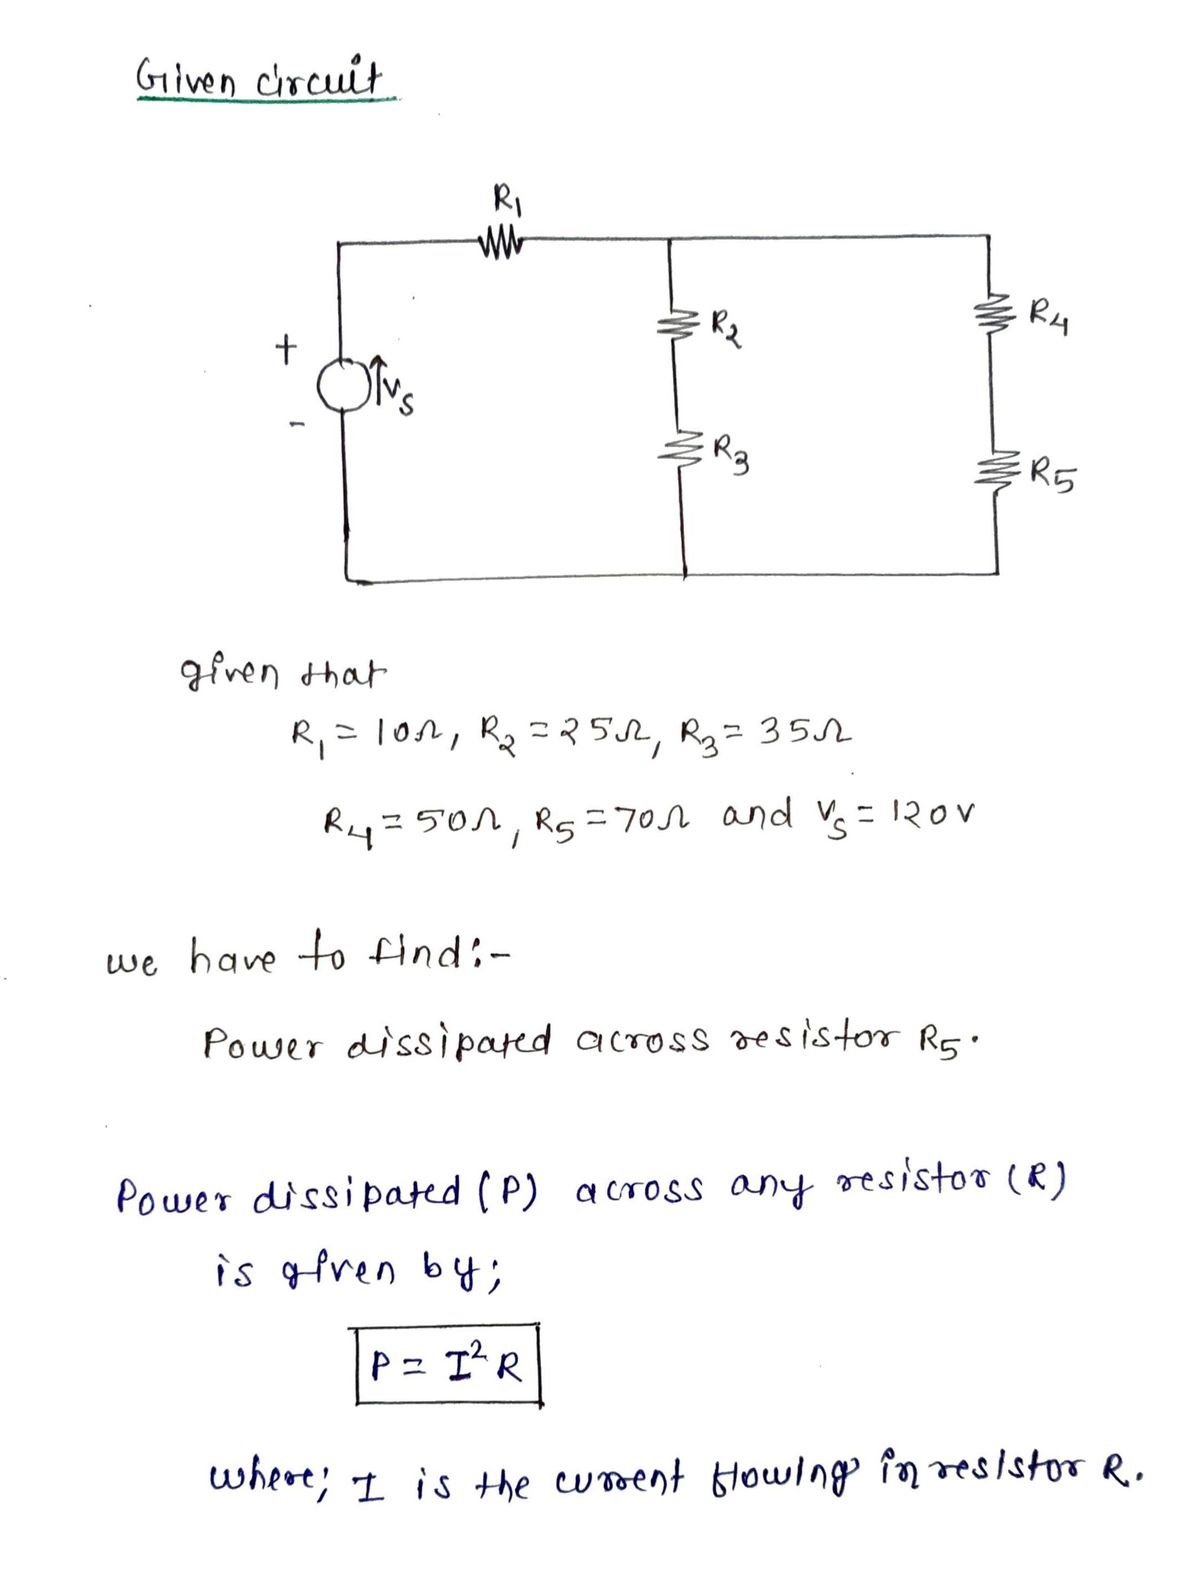 Given circuit
R₁
+
↑Vs
-
R₂
R₄
R₃
R₅
given that
R₁ = 10Ω, R₂ = 25Ω, R₃ = 35Ω
R₄ = 50Ω, R₅ = 70Ω and Vs = 120V
we have to find:-
Power dissipated across resistor R₅.
Power dissipated (P) across any resistor (R)
is given by;
P = I² R
where; I is the current flowing in resistor R.